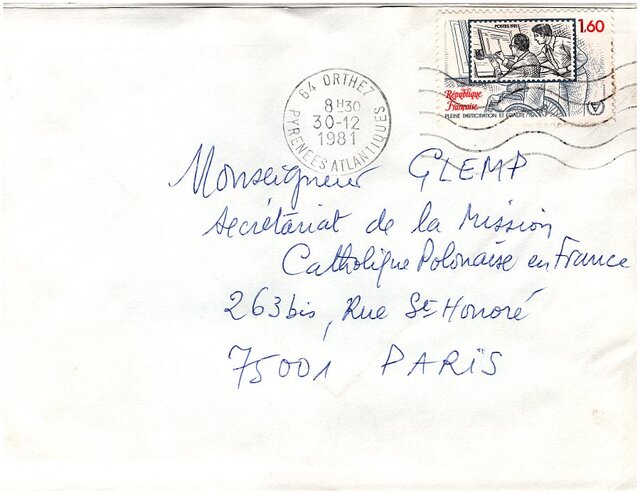 POSTES 1981
1.60
République
Française
PLEINE PARTICIPATION ET EGALITE
64 ORTHEZ
8H30
30-12
1981
PYRENEES ATLANTIQUES
Monseigneur GLEMP
Secrétariat de la Mission
Catholique Polonaise en France
263 bis, Rue St Honoré
75001 PARÏS